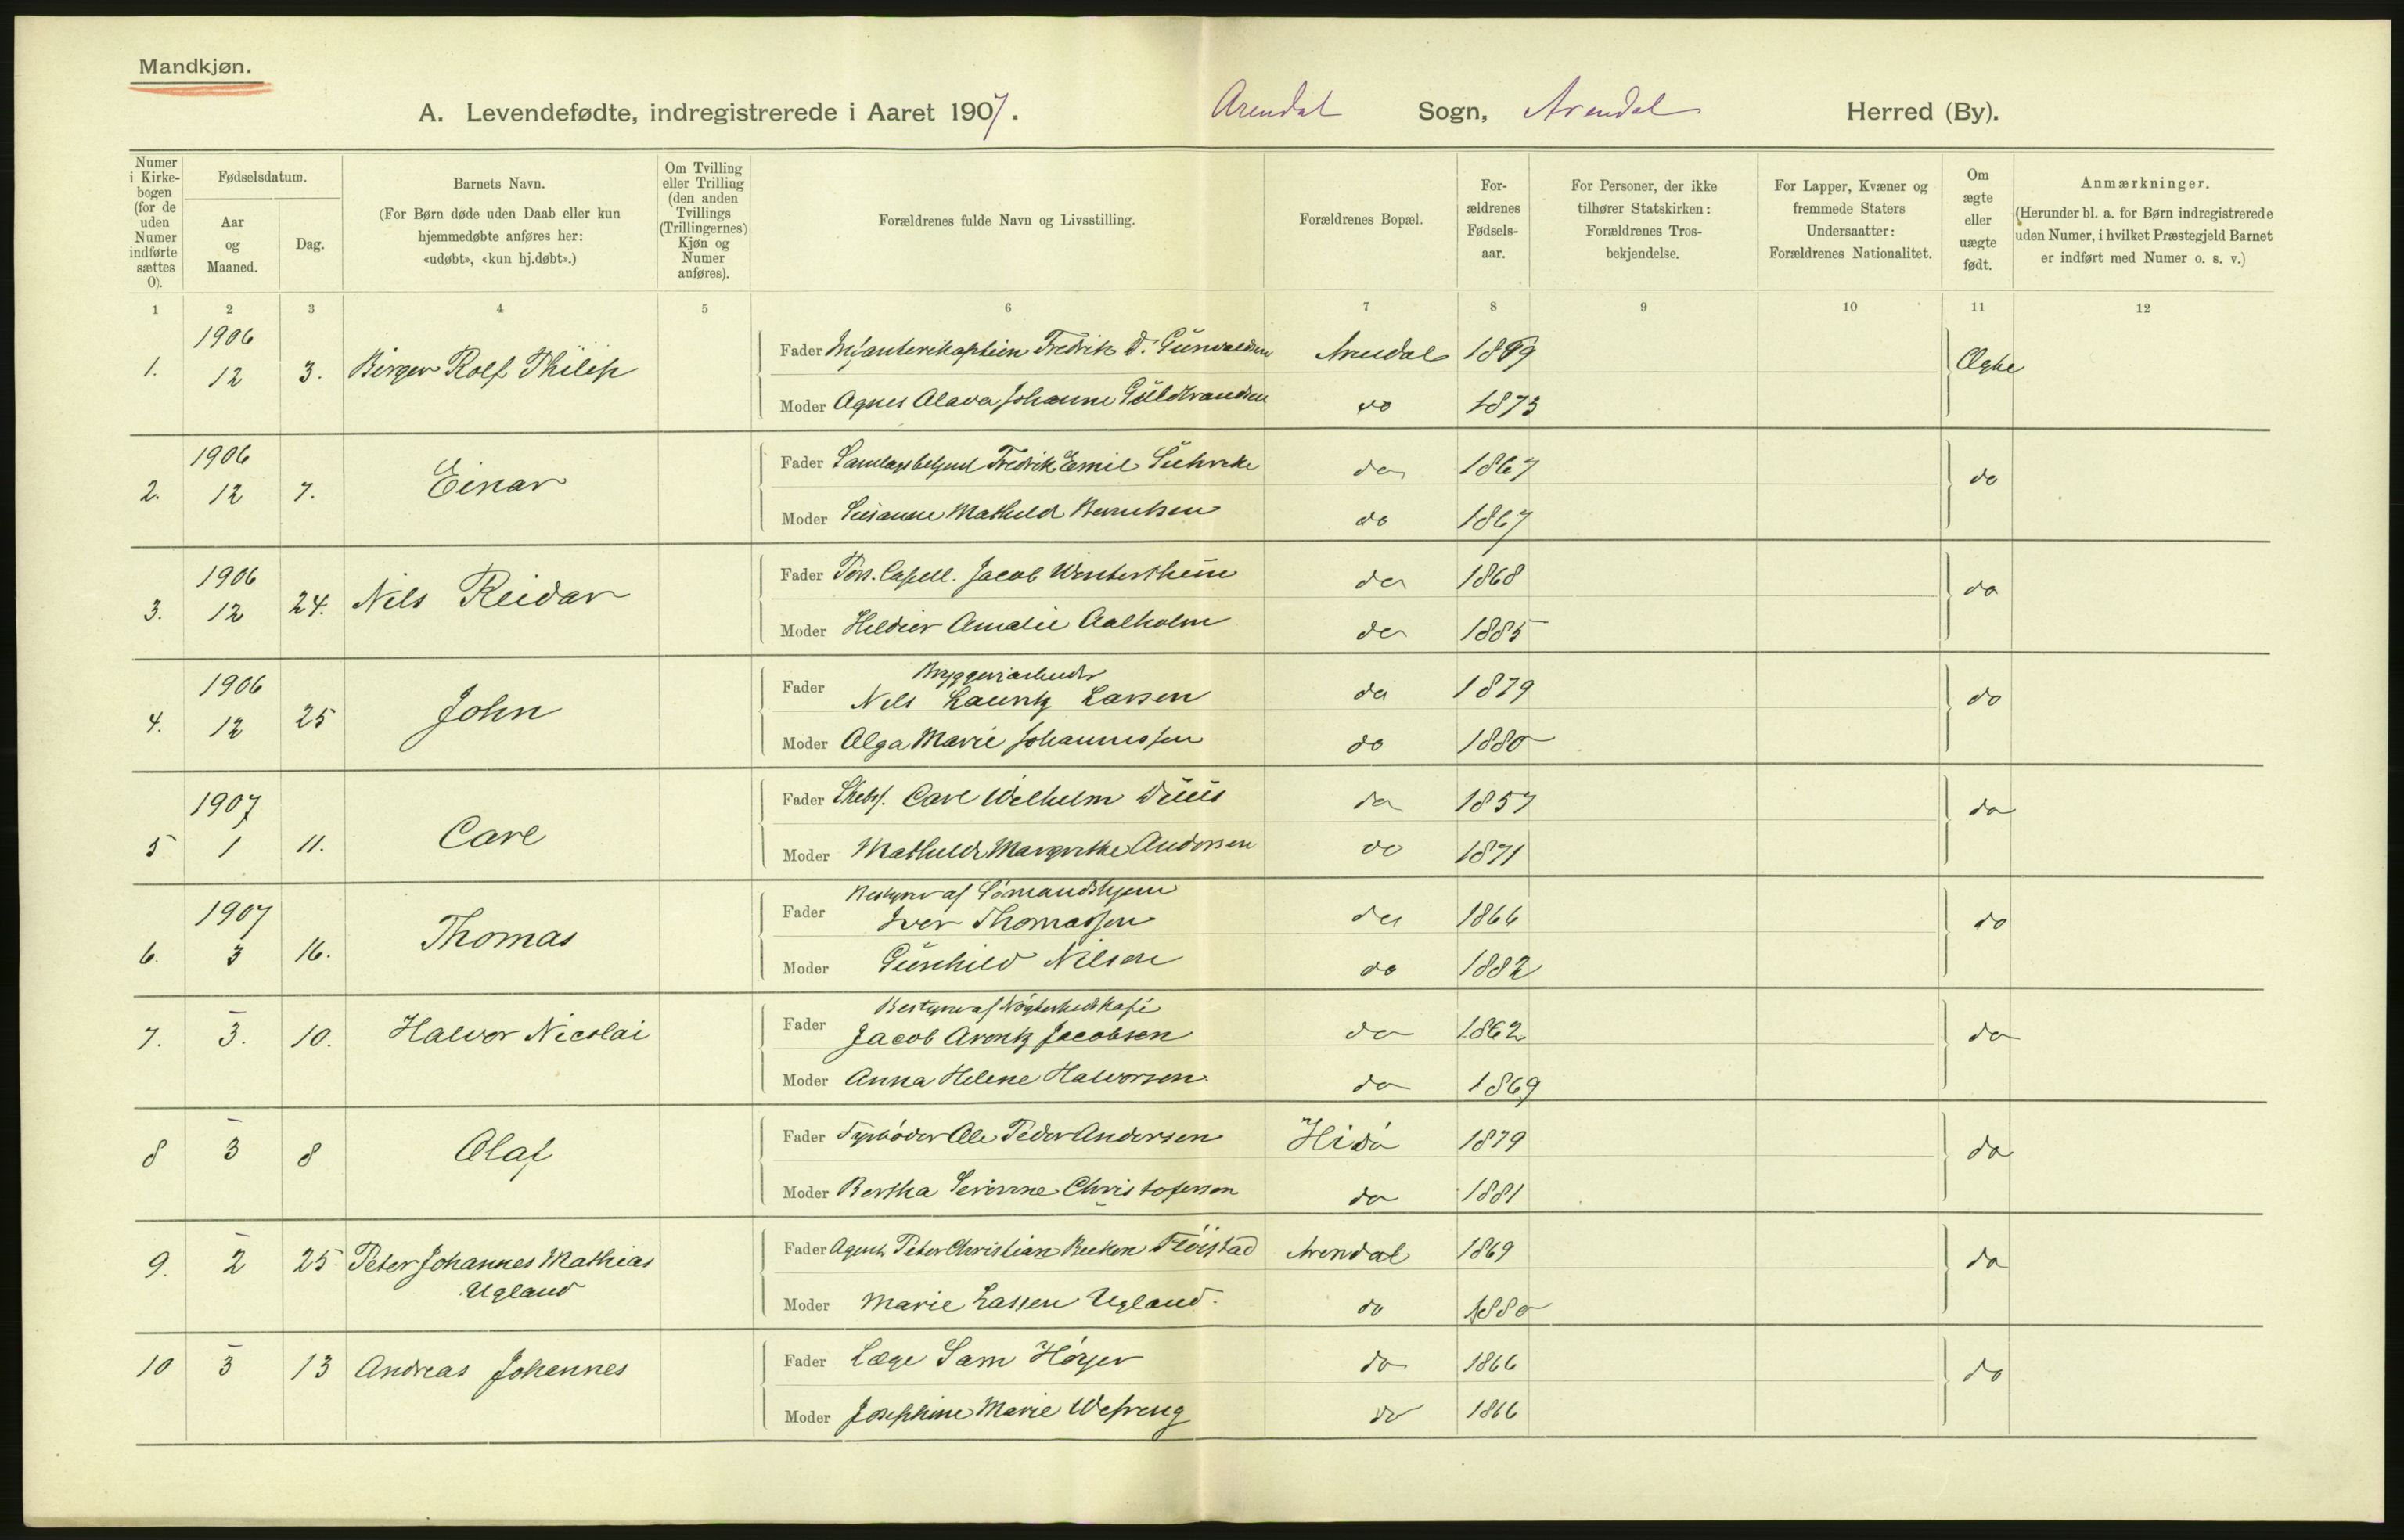 Mandkjøn.
A. Levendefødte, indregistrerede i Aaret 1907. Arendal Sogn, Arendal Herred (By).
Numer i Kirkebogen (for de uden Numer indførte sættes 0).
Fødselsdatum.
Aar og Maaned.
Dag.
Barnets Navn.
(For Børn døde uden Daab eller kun hjemmedøbte anføres her: «udøbt», «kun hj.døbt».)
Om Tvilling eller Trilling (den anden Tvillings (Trillingernes) Kjøn og Numer anføres).
Forældrenes fulde Navn og Livsstilling.
Forældrenes Bopæl.
Forældrenes Fødselsaar.
For Personer, der ikke tilhører Statskirken: Forældrenes Trosbekjendelse.
For Lapper, Kvæner og fremmede Staters Undersaatter: Forældrenes Nationalitet.
Om ægte eller uægte født.
Anmærkninger.
(Herunder bl. a. for Børn indregistrerede uden Numer, i hvilket Præstegjeld Barnet er indført med Numer o. s. v.)
1 2 3 4 5 6 7 8 9 10 11 12
1. 1906 12 3. Birger Rolf Thilep
Fader Fredrik Arendal 1869 Ægte
Moder Agnes Johanne do 1873
2. 1906 12 7. Einar
Fader Fredrik Emil do 1867 do
Moder Mathild do 1867
3. 1906 12 24. Nils Reidar
Fader Capell. Jacob do 1868 do
Moder Amalie Aalholm do 1885
4. 1906 12 25 John
Fader Bryggeriarbeider
Nils Lauritz Larsen do 1879 do
Moder Olga Marie Johannessen do 1880
5 1907 1 11. Carl
Fader Skibsf. Carl Wilhelm Duus do 1857 do
Moder Mathilde Margrethe Andersen do 1871
6. 1907 3 16. Thomas
Fader Bestyrer af Sömandshjem
Iver Thomassen do 1866 do
Moder Gunhild Nilsen do 1882
7. – 3. 10. Halvor Nicolai
Fader Bestyrer af
Jacob Arontz Jacobsen do 1862 do
Moder Anna Helene Halvorsen do 1869
8 – 3 8 Olaf
Fader Fyrbøder Ole Peder Andersen Hisö 1879 do
Moder Bertha Severine Christofersen do 1881
9. – 2 25. Peter Johannes Mathias Ugland
Fader Agent Peter Christian Arendal 1869 do
Moder Marie Lassen Ugland. do 1880
10 – 3 13 Andreas Johannes
Fader Læge Sam Höyer do 1866 do
Moder Josephine Marie do 1866